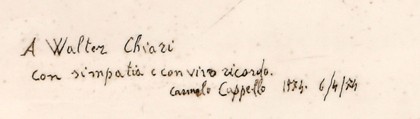 A Walter Chiari
con simpatia e con vivo ricordo.
Carmelo Cappello 1954. 6/4/54